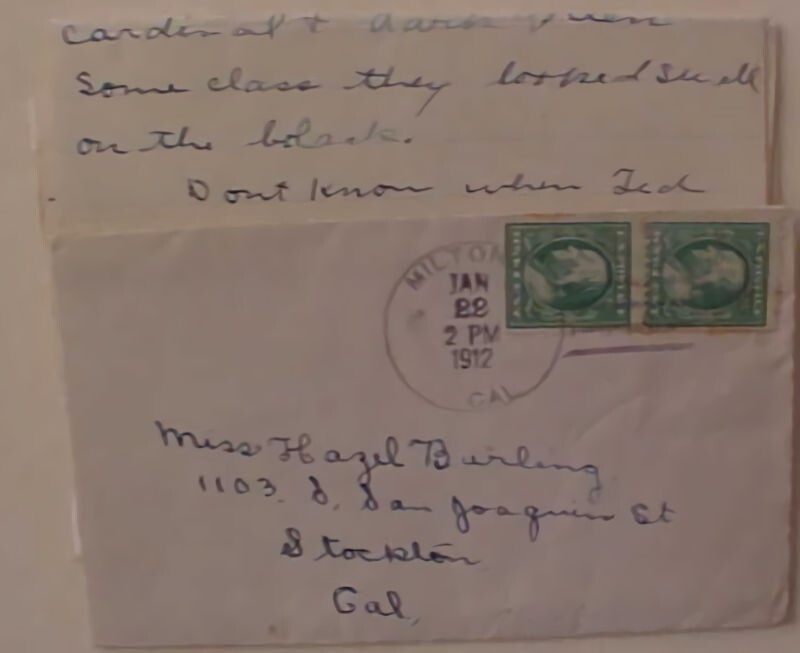 cardinal + dark green
Some class they looked swell
on the black.
Dont know when Ted
MILTON
JAN
22
2 PM
1912
CAL
Miss Hazel Burling
1103. S. San Joaquin St
Stockton
Cal,